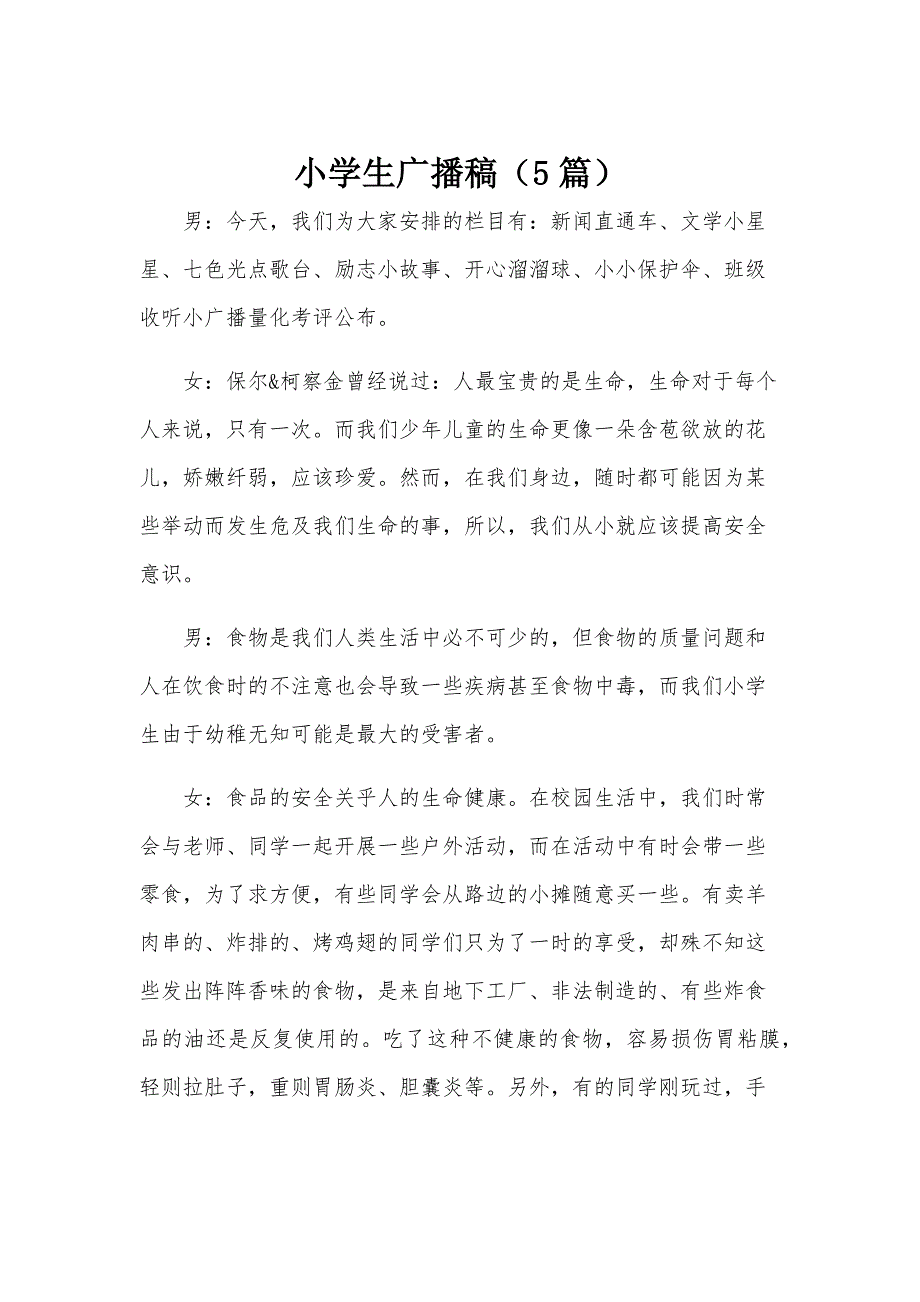 小学生广播稿（5篇）
男：今天，我们为大家安排的栏目有：新闻直通车、文学小星
星、七色光点歌台、励志小故事、开心溜溜球、小小保护伞、班级
收听小广播量化考评公布。
女：保尔&柯察金曾经说过：人最宝贵的是生命，生命对于每个
人来说，只有一次。而我们少年儿童的生命更像一朵含苞欲放的花
儿，娇嫩纤弱，应该珍爱。然而，在我们身边，随时都可能因为某
些举动而发生危及我们生命的事，所以，我们从小就应该提高安全
意识。
男：食物是我们人类生活中必不可少的，但食物的质量问题和
人在饮食时的不注意也会导致一些疾病甚至食物中毒，而我们小学
生由于幼稚无知可能是最大的受害者。
女：食品的安全关乎人的生命健康。在校园生活中，我们时常
会与老师、同学一起开展一些户外活动，而在活动中有时会带一些
零食，为了求方便，有些同学会从路边的小摊随意买一些。有卖羊
肉串的、炸排的、烤鸡翅的同学们只为了一时的享受，却殊不知这
些发出阵阵香味的食物，是来自地下工厂、非法制造的、有些炸食
品的油还是反复使用的。吃了这种不健康的食物，容易损伤胃粘膜，
轻则拉肚子，重则胃肠炎、胆囊炎等。另外，有的同学刚玩过，手